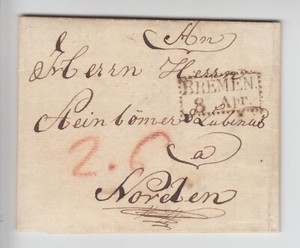 An
Herrn Herrn
BREMEN.
8 Apr.
Reinbömer & Lubinus
2.6.
a
Norden